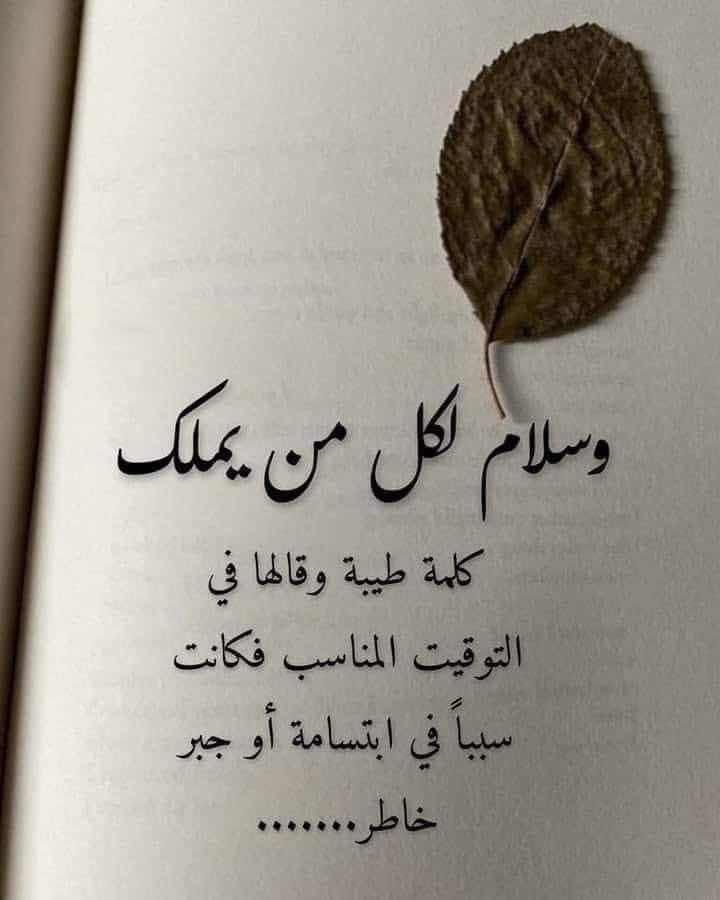 وسلام لكل من يملك
كلمة طيبة وقالها في
التوقيت المناسب فكانت
سبباً في ابتسامة أو جبر
خاطر.......